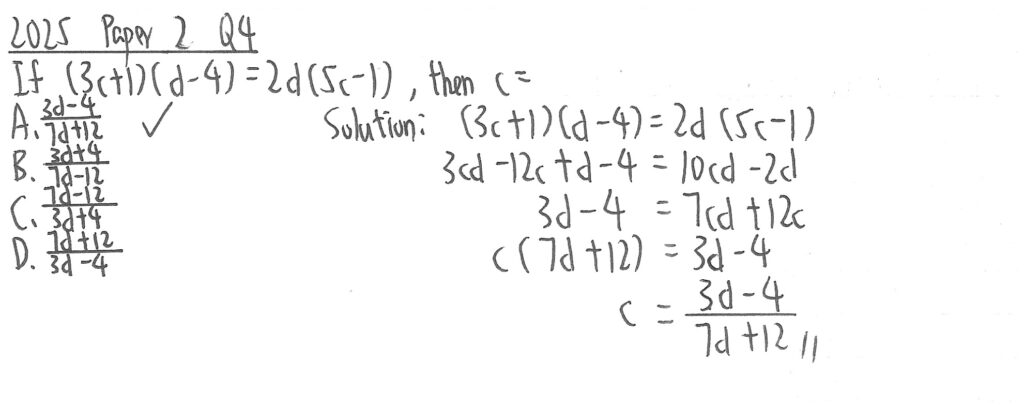 2025 Paper 2 Q4
If (3c+1)(d-4)=2d(5c-1), then c=
A. (3d-4)/(7d+12) ✓
B. (3d+4)/(7d-12)
C. (7d-12)/(3d+4)
D. (7d+12)/(3d-4)
Solution: (3c+1)(d-4)=2d(5c-1)
3cd-12c+d-4=10cd-2d
3d-4=7cd+12c
c(7d+12)=3d-4
c=(3d-4)/(7d+12)//